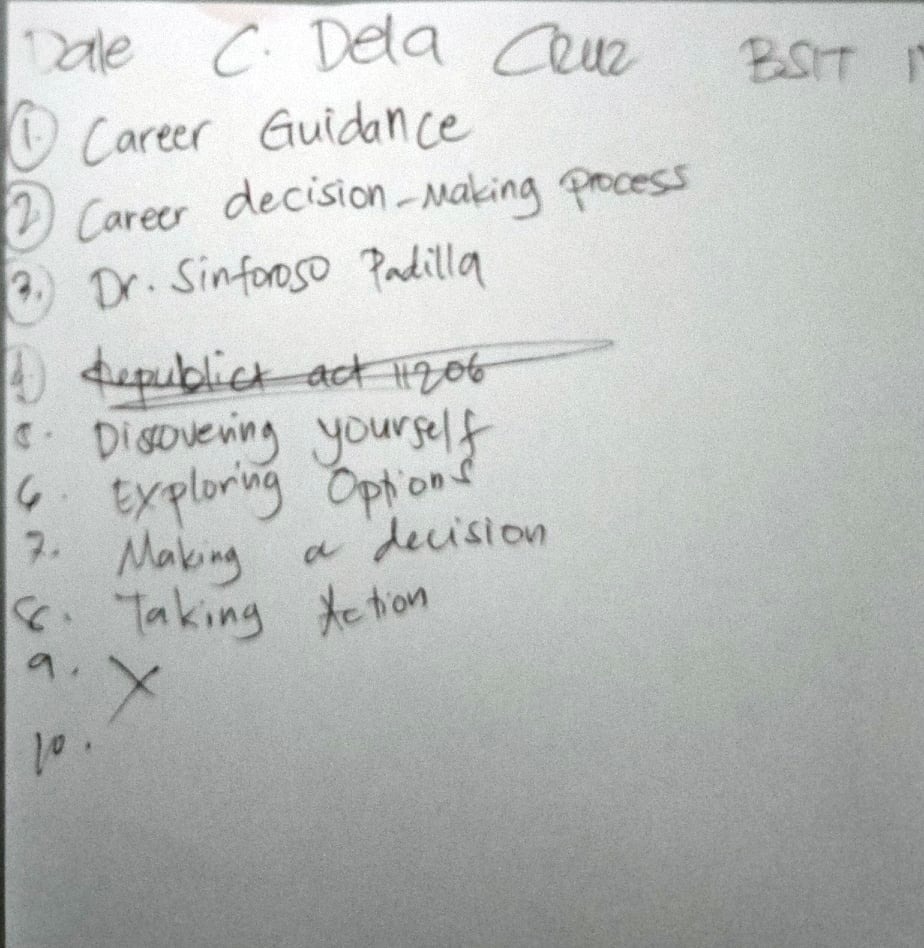 Dale C. Dela Cruz BSIT
1. Career Guidance
2. Career decision-Making process
3. Dr. Sinforoso Padilla
4. Republict act 11206
5. Discovering yourself
6. Exploring Options
7. Making a decision
8. Taking Action
9. X
10.